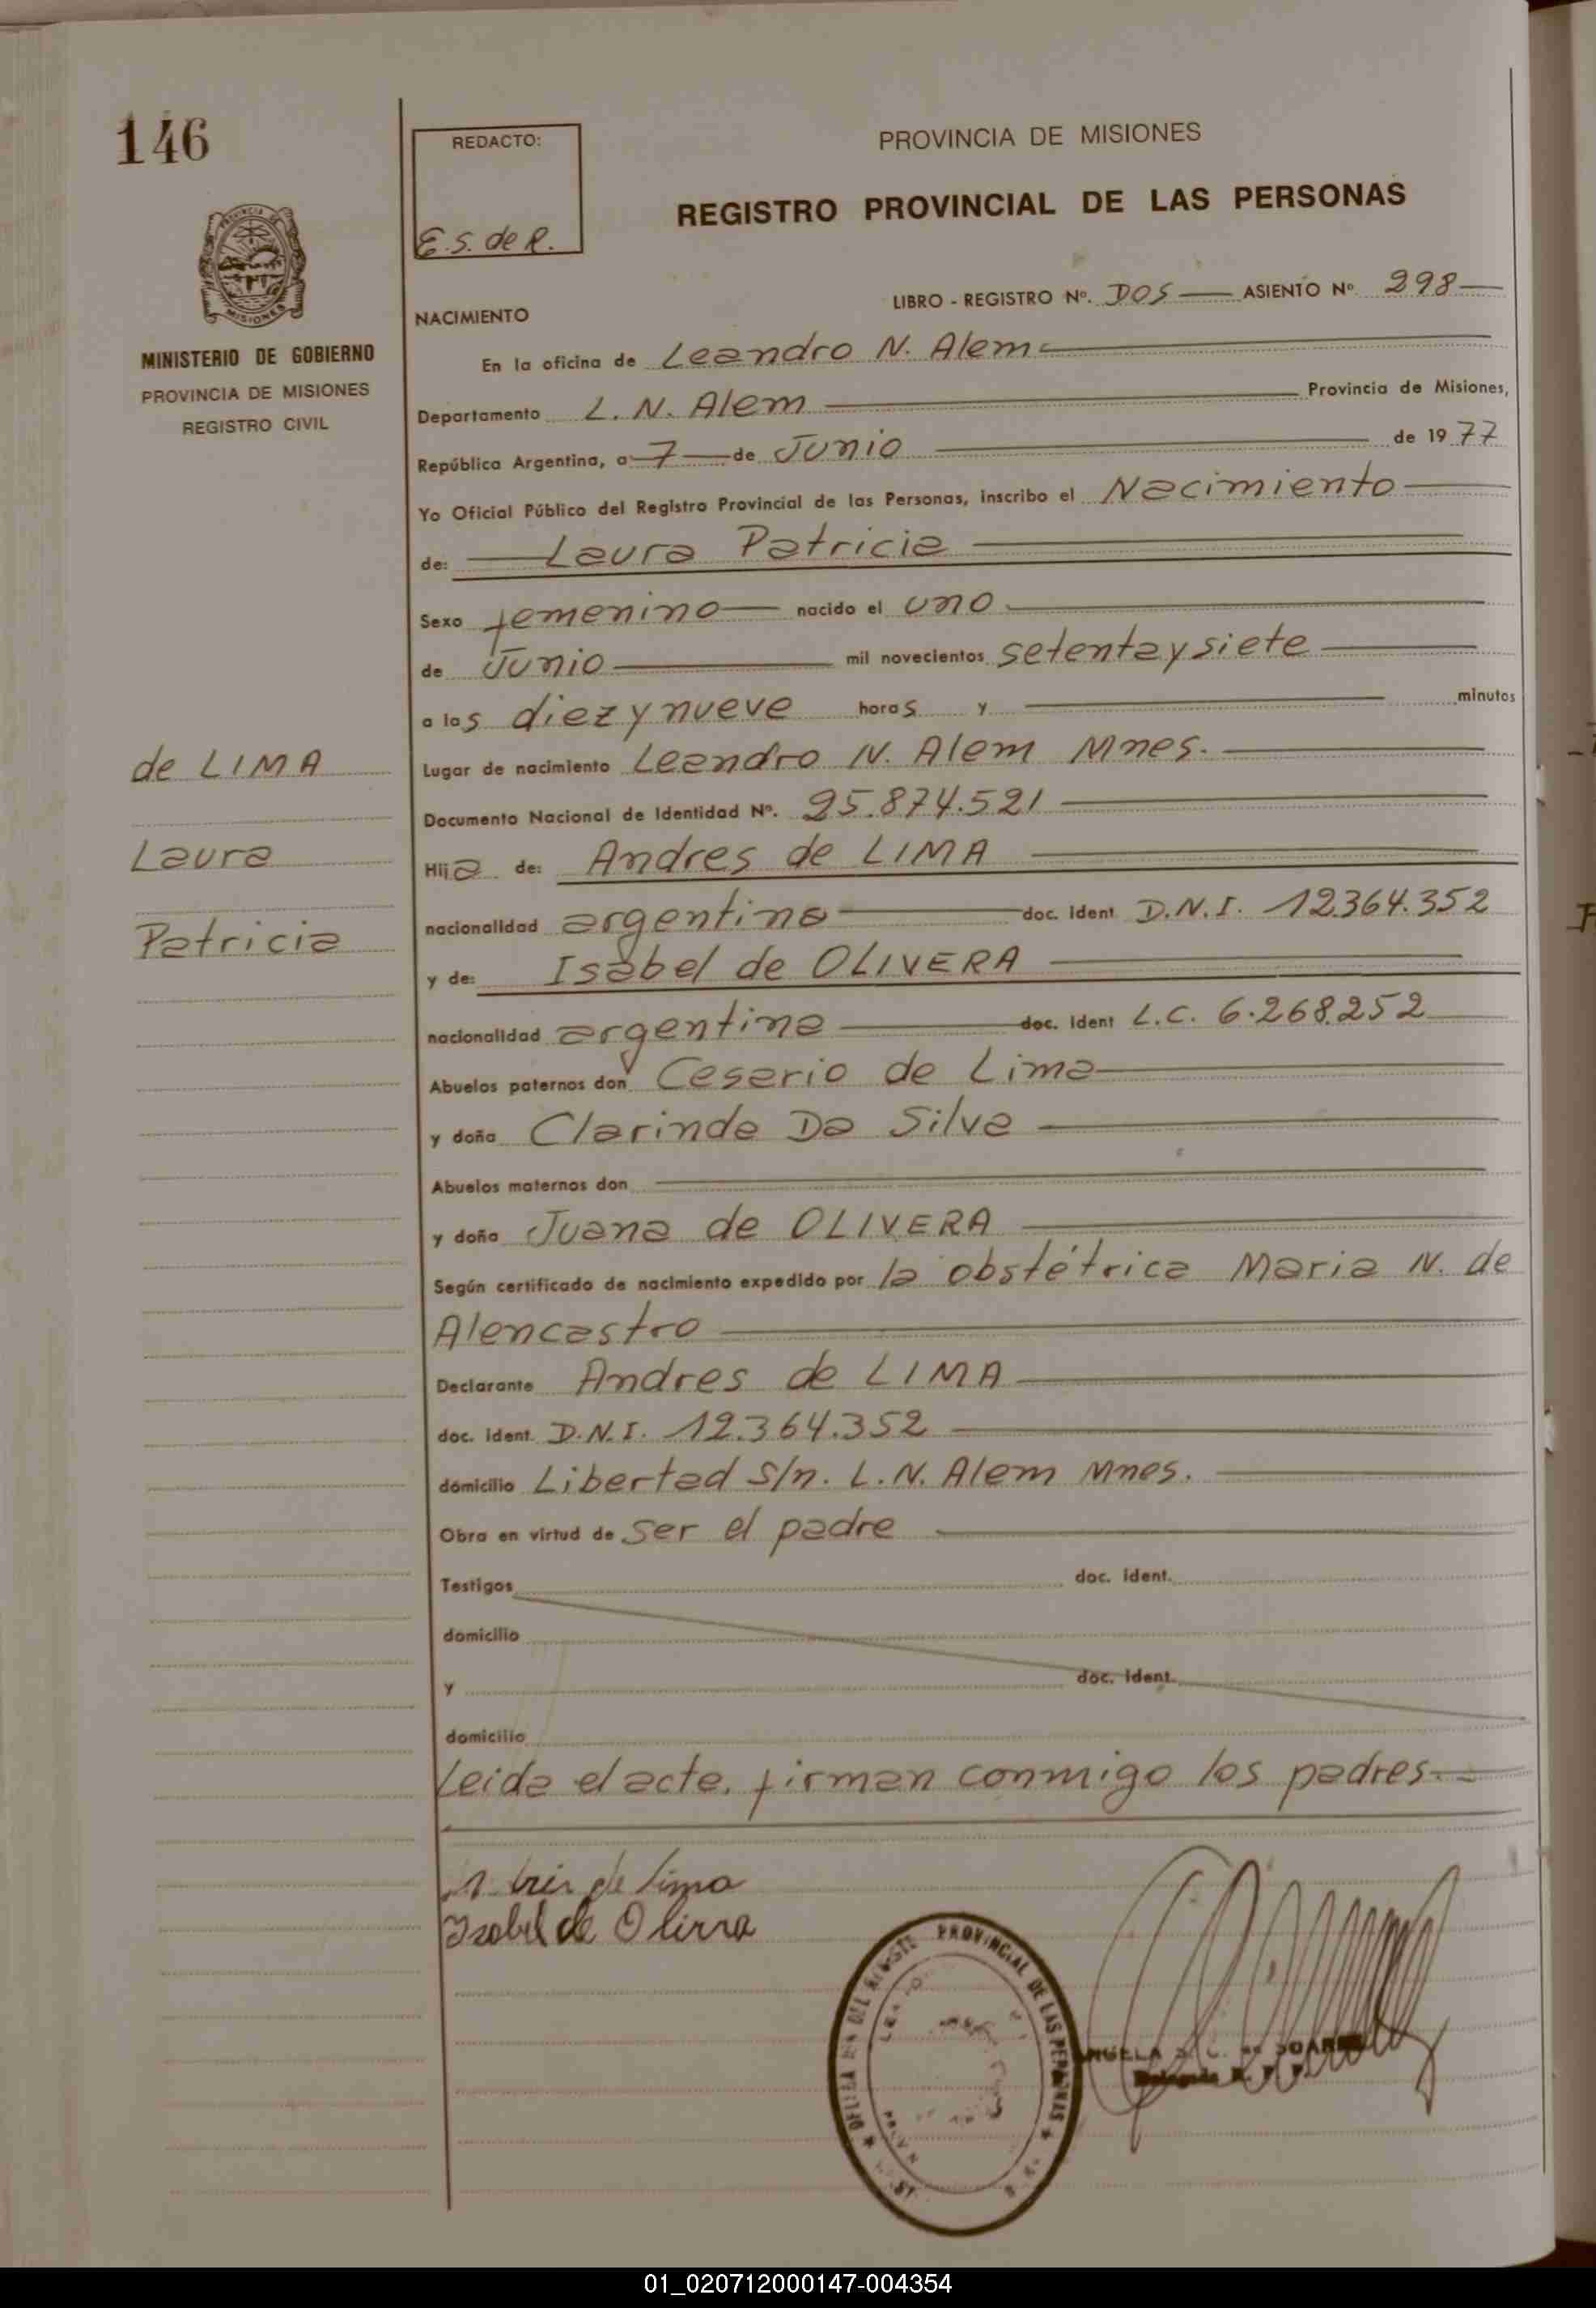 146
REDACTO:
E.S. de R.
PROVINCIA DE MISIONES
REGISTRO PROVINCIAL DE LAS PERSONAS
MISIONES
MINISTERIO DE GOBIERNO
PROVINCIA DE MISIONES
REGISTRO CIVIL
LIBRO - REGISTRO Nº. DOS ASIENTO Nº 298
NACIMIENTO
En la oficina de Leandro N. Alem
Departamento L. N. Alem Provincia de Misiones,
República Argentina, a 7 de Junio de 1977
Yo Oficial Público del Registro Provincial de las Personas, inscribo el Nacimiento
de: Laura Patricia
Sexo femenino nacido el uno
de Junio mil novecientos setenta y siete
a las diez y nueve horas y minutos
Lugar de nacimiento Leandro N. Alem Mnes.
Documento Nacional de Identidad Nº. 25.874.521
Hija de: Andres de LIMA
nacionalidad argentina doc. ident D.N.I. 12364.352
y de: Isabel de OLIVERA
nacionalidad argentina doc. ident L.C. 6.268.252
Abuelos paternos don Cesario de Lima
y doña Clarinda Da Silva
Abuelos maternos don
y doña Juana de OLIVERA
Según certificado de nacimiento expedido por la obstétrica Maria N. de
Alencastro
Declarante Andres de LIMA
doc. ident. D.N.I. 12.364.352
domicilio Libertad S/n. L.N. Alem Mnes.
Obra en virtud de ser el padre
Testigos doc. ident.
domicilio
y doc. ident.
domicilio
Leida el acta, firman conmigo los padres.
de LIMA
Laura
Patricia
de lima
Isabel de Olivra
PROVINCIAL DE LAS PERSONAS
01_020712000147-004354